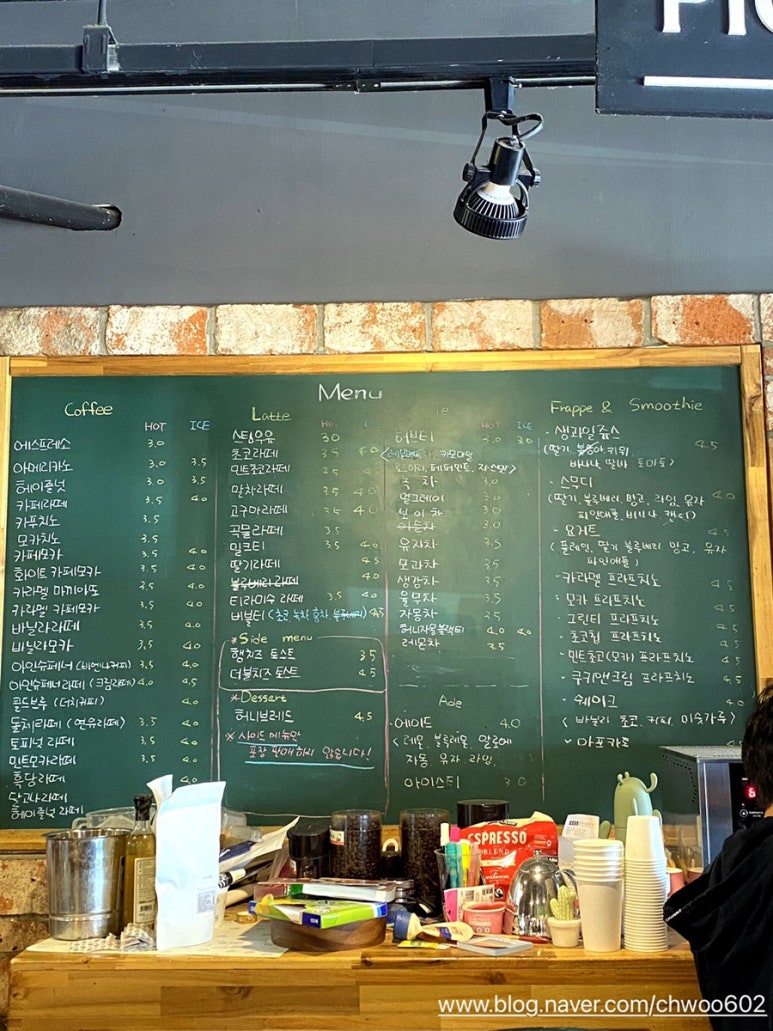 Menu
Coffee
HOT ICE
에스프레소 3.0
아메리카노 3.0 3.5
헤이즐넛 3.0 3.5
카페라떼 3.5 4.0
카푸치노 3.5
모카치노 3.5
카페모카 3.5 4.0
화이트 카페모카 3.5 4.0
카라멜 마끼아또 3.5 4.0
카라멜 카페모카 3.5 4.0
바닐라라떼 3.5 4.0
바닐라모카 3.5 4.0
아인슈페너 (비엔나커피) 3.5 4.0
아인슈페너라떼 (크림라떼) 4.0 4.5
콜드브루 (더치커피) 4.0
돌체라떼 (연유라떼) 3.5 4.0
토피넛 라떼 3.5 4.0
민트모카라떼 3.5 4.0
흑당라떼 4.0
달고나라떼
헤이즐넛 라떼
Latte
스팀우유 3.0
초코라떼 3.5 4.0
민트초코라떼 3.5
말차라떼 3.5 4.0
고구마라떼 3.5 4.0
곡물라떼 3.5
밀크티 3.5 4.0
딸기라떼 4.0
블루베리라떼 4.0
티라미수 라떼 3.5 4.0
버블티 (초코 녹차 홍차 블루베리) 4.5
*Side menu
햄치즈 토스트 3.5
더블치즈 토스트 4.5
*Dessert
허니브레드 4.5
※ 사이드 메뉴만
포장 판매하지 않습니다!
HOT ICE
허브티 3.0 3.0
카모마일
페퍼민트, 자스민)
녹차 3.0
얼그레이 3.0
보이차 3.0
유자차 3.5
모과차 3.5
생강차 3.5
율무차 3.5
자몽차 3.5
허니자몽블랙티 4.0 4.0
레몬차 3.5
Ade
·에이드 4.0
(레몬, 블루레몬, 깔라만
자몽, 유자, 라임,
아이스티 3.0
Frappe & Smoothie
·생과일쥬스 4.5
(딸기, 키위,
바나나, 딸바, 토마토)
·스무디 4.0
(딸기, 블루베리, 망고, 라임, 유자
파인애플,
·요거트 4.5
(플레인, 딸기, 블루베리, 망고, 유자
파인애플)
·카라멜 프라프치노 4.5
·모카 프라프치노 4.5
·그린티 프라프치노 4.5
·초코칩 프라프치노 4.5
·민트초코(모카) 프라프치노 4.5
·쿠키앤크림 프라프치노 4.5
·쉐이크 4.0
(바닐라, 초코, 커피, 미숫가루)
·아포카토
ESPRESSO
BLEND
www.blog.naver.com/chwoo602